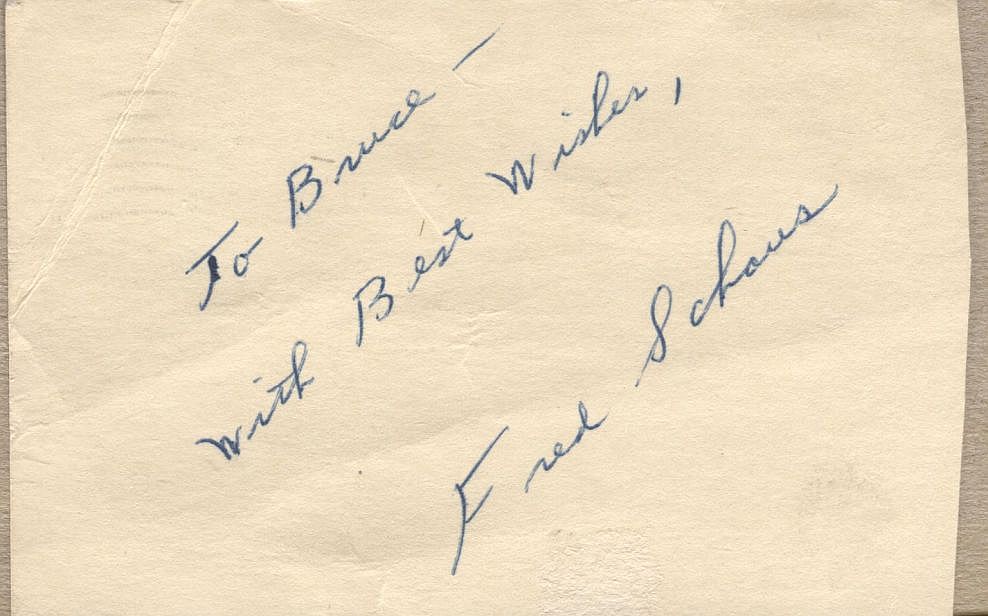 To Bruce –
With Best Wishes,
Fred Schaus